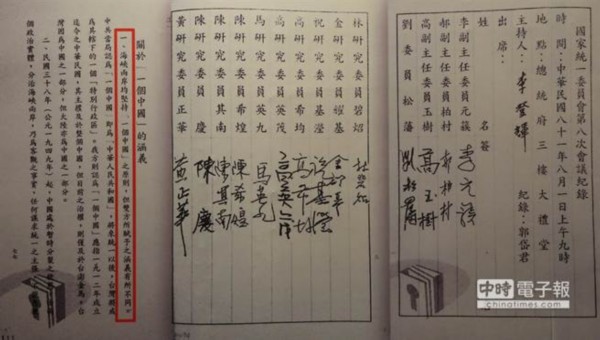 國家統一委員會第八次會議紀錄
時間：中華民國八十一年八月一日上午九時
地點：總統府三樓大禮堂
主持人：李登輝
紀錄：郭岱君
出席：
姓名
簽名
李副主任委員元簇 李元簇
郝副主任委員柏村 郝柏村
高副主任委員玉樹 高玉樹
劉委員松藩 劉松藩
林研究委員碧炤 林碧炤
金研究委員耀基 金耀基
倪研究委員基瀅
高研究委員希均 高希均
高研究委員英茂 高英茂
馬研究委員英九 馬英九
陳研究委員希煌 陳希煌
陳研究委員其南 陳其南
陳研究委員慶 陳慶
黃研究委員正華 黃正華
關於「一個中國」的涵義
一、海峽兩岸均堅持「一個中國」之原則，但雙方所賦予之涵義有所不同。
中共當局認為「一個中國」即為「中華人民共和國」，將來統一以後，台灣將成
為其轄下的一個「特別行政區」。我方則認為「一個中國」應指一九一二年成立
迄今之中華民國，其主權及於整個中國，但目前之治權，則僅及於台澎金馬。台
灣固為中國之一部分，但大陸亦為中國之一部分。
二、民國三十八年（公元一九四九年）起，中國處於暫時分裂之
個政治實體，分治海峽兩岸，乃為客觀之事實，任何謀求統一之主
中時電子報
chinatimes.com